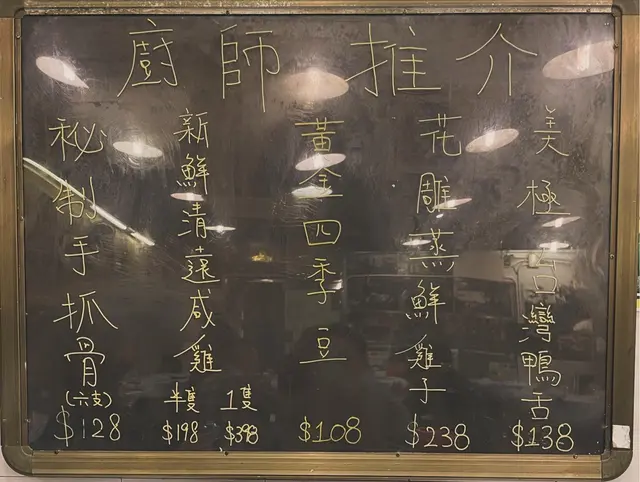 廚師推介
美極台灣鴨舌
$138
花雕蒸鮮雞子
$238
黃金四季豆
$108
新鮮清遠咸雞
半隻 1隻
$198 $398
秘制手抓骨
(六支)
$128